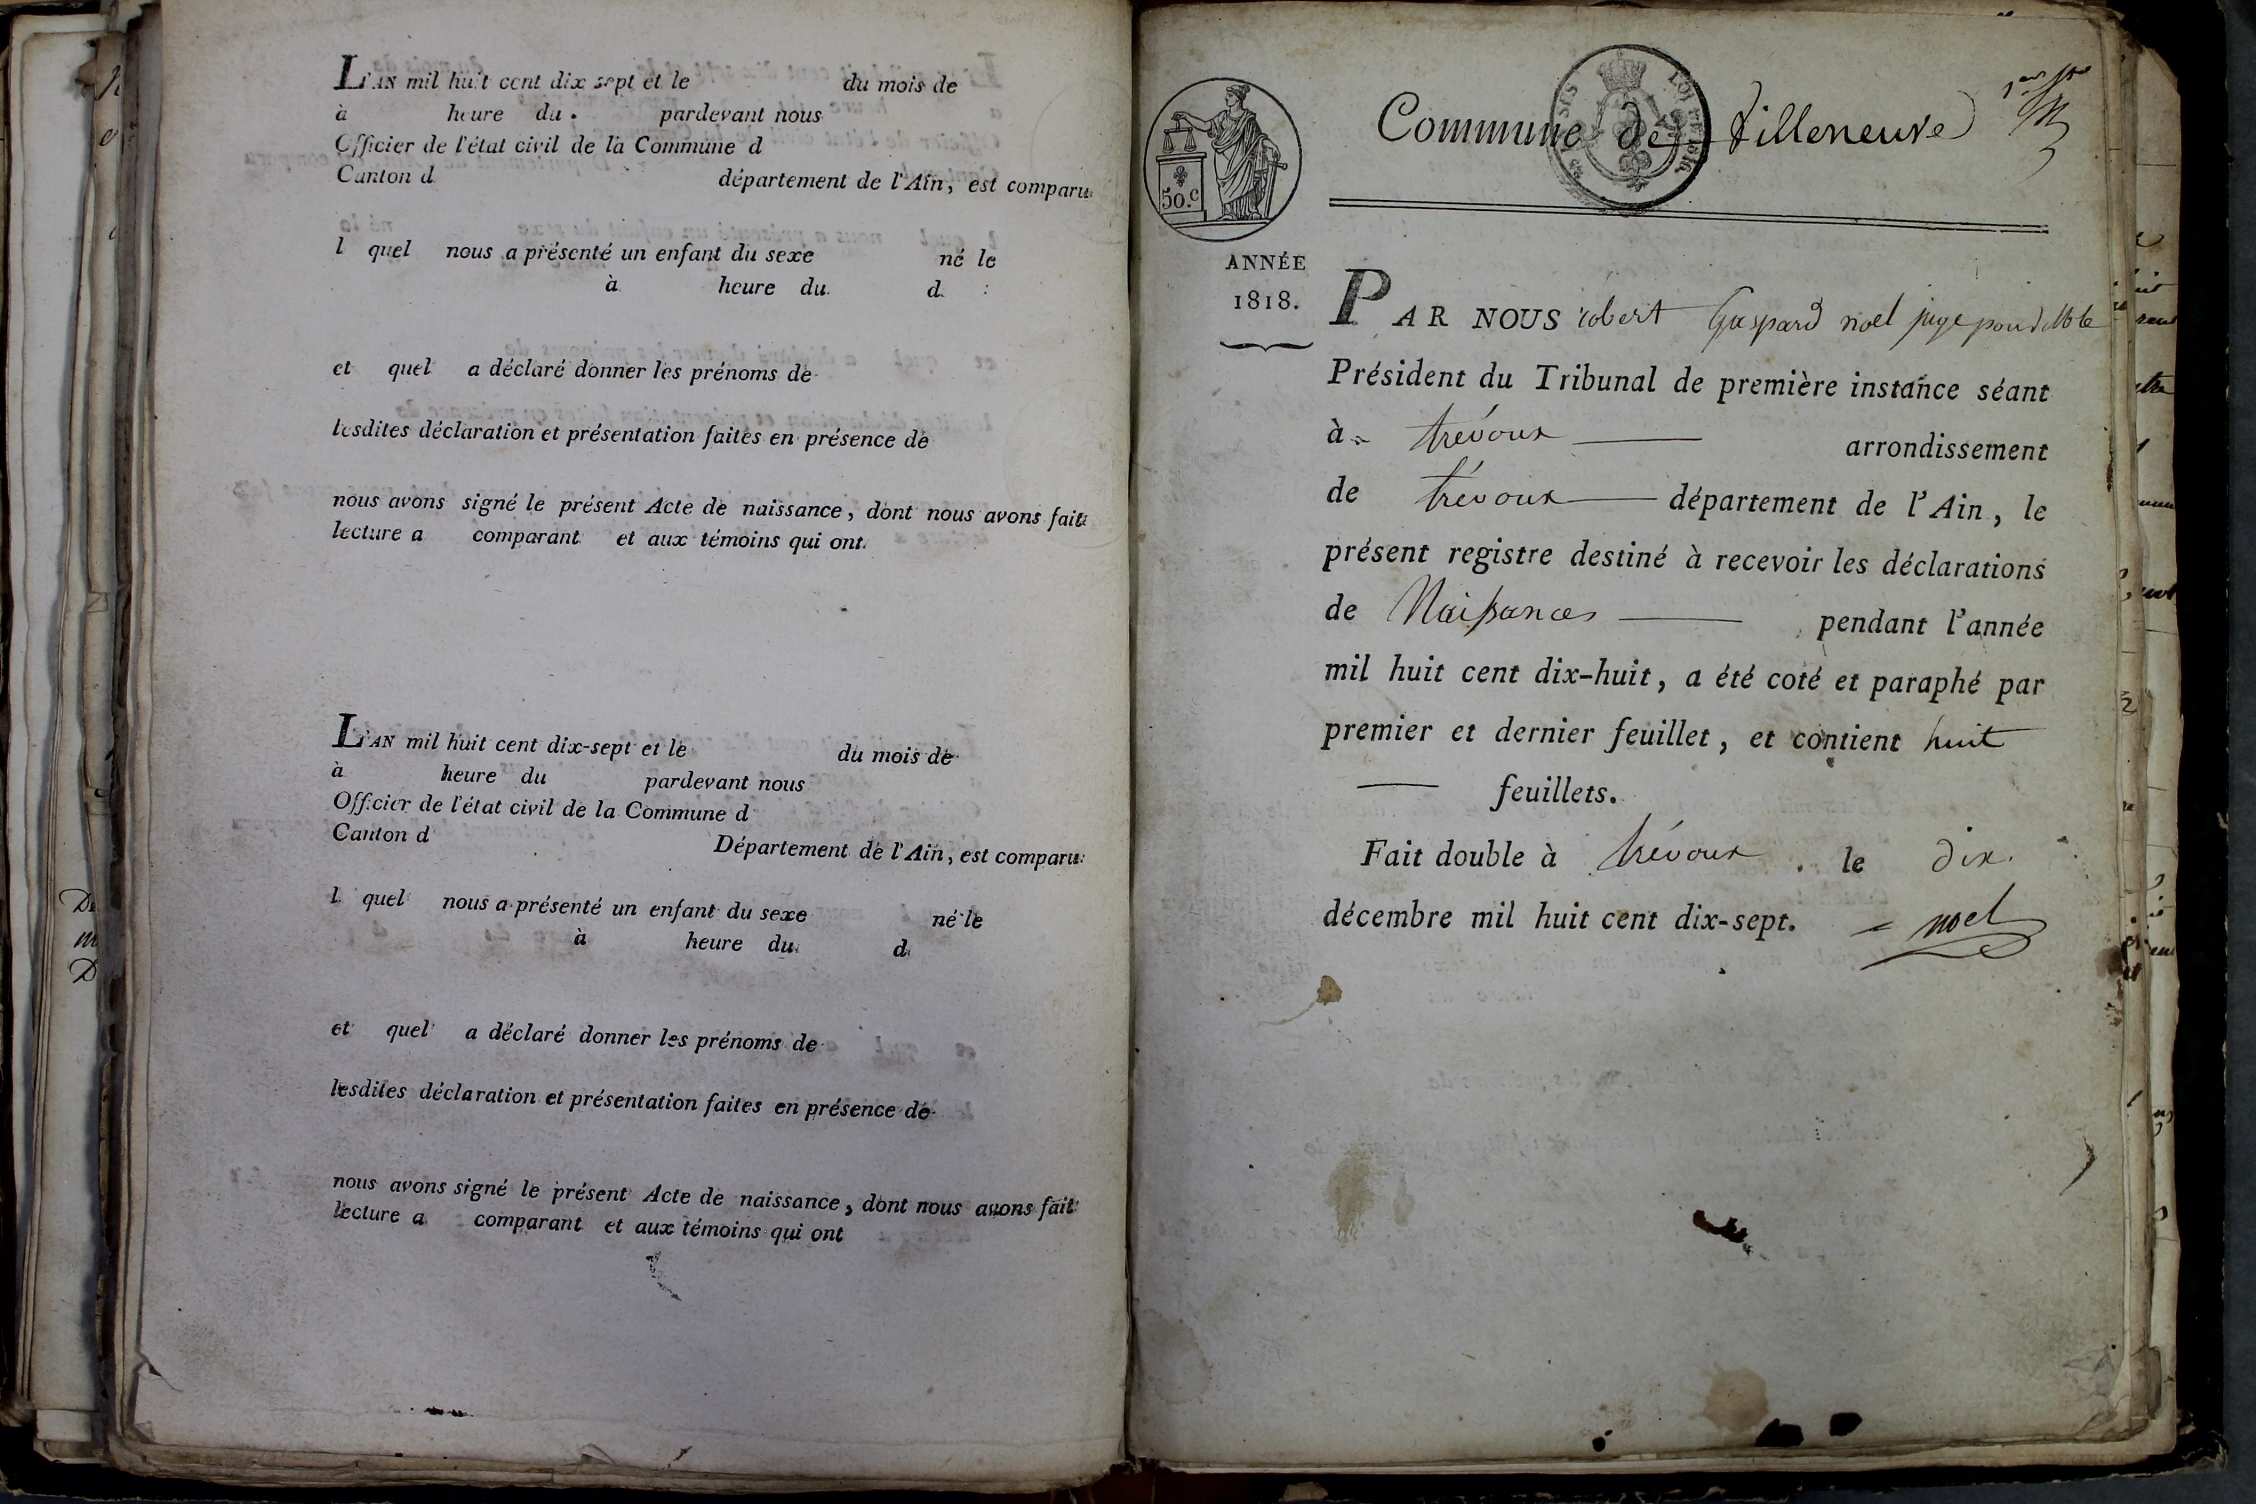 L'AN mil huit cent dix sept et le du mois de
à heure du pardevant nous
Officier de l'état civil de la Commune d
Canton d département de l'Ain, est comparu
l quel nous a présenté un enfant du sexe né le
à heure du d
et quel a déclaré donner les prénoms de
lesdites déclaration et présentation faites en présence de
nous avons signé le présent Acte de naissance, dont nous avons fait
lecture a comparant et aux témoins qui ont
L'AN mil huit cent dix-sept et le du mois de
à heure du pardevant nous
Officier de l'état civil de la Commune d
Canton d Département de l'Ain, est comparu
l quel nous a présenté un enfant du sexe né le
à heure du d
et quel a déclaré donner les prénoms de
lesdites déclaration et présentation faites en présence de
nous avons signé le présent Acte de naissance, dont nous avons fait
lecture a comparant et aux témoins qui ont
Commune de Villeneuve
50.c
ANNÉE
1818.
PAR NOUS robert Gaspard noel juge pour
Président du Tribunal de première instance séant
à trévoux arrondissement
de trévoux département de l'Ain, le
présent registre destiné à recevoir les déclarations
de Naissances pendant l'année
mil huit cent dix-huit, a été coté et paraphé par
premier et dernier feuillet, et contient huit
feuillets.
Fait double à trévoux le dix
décembre mil huit cent dix-sept. noel